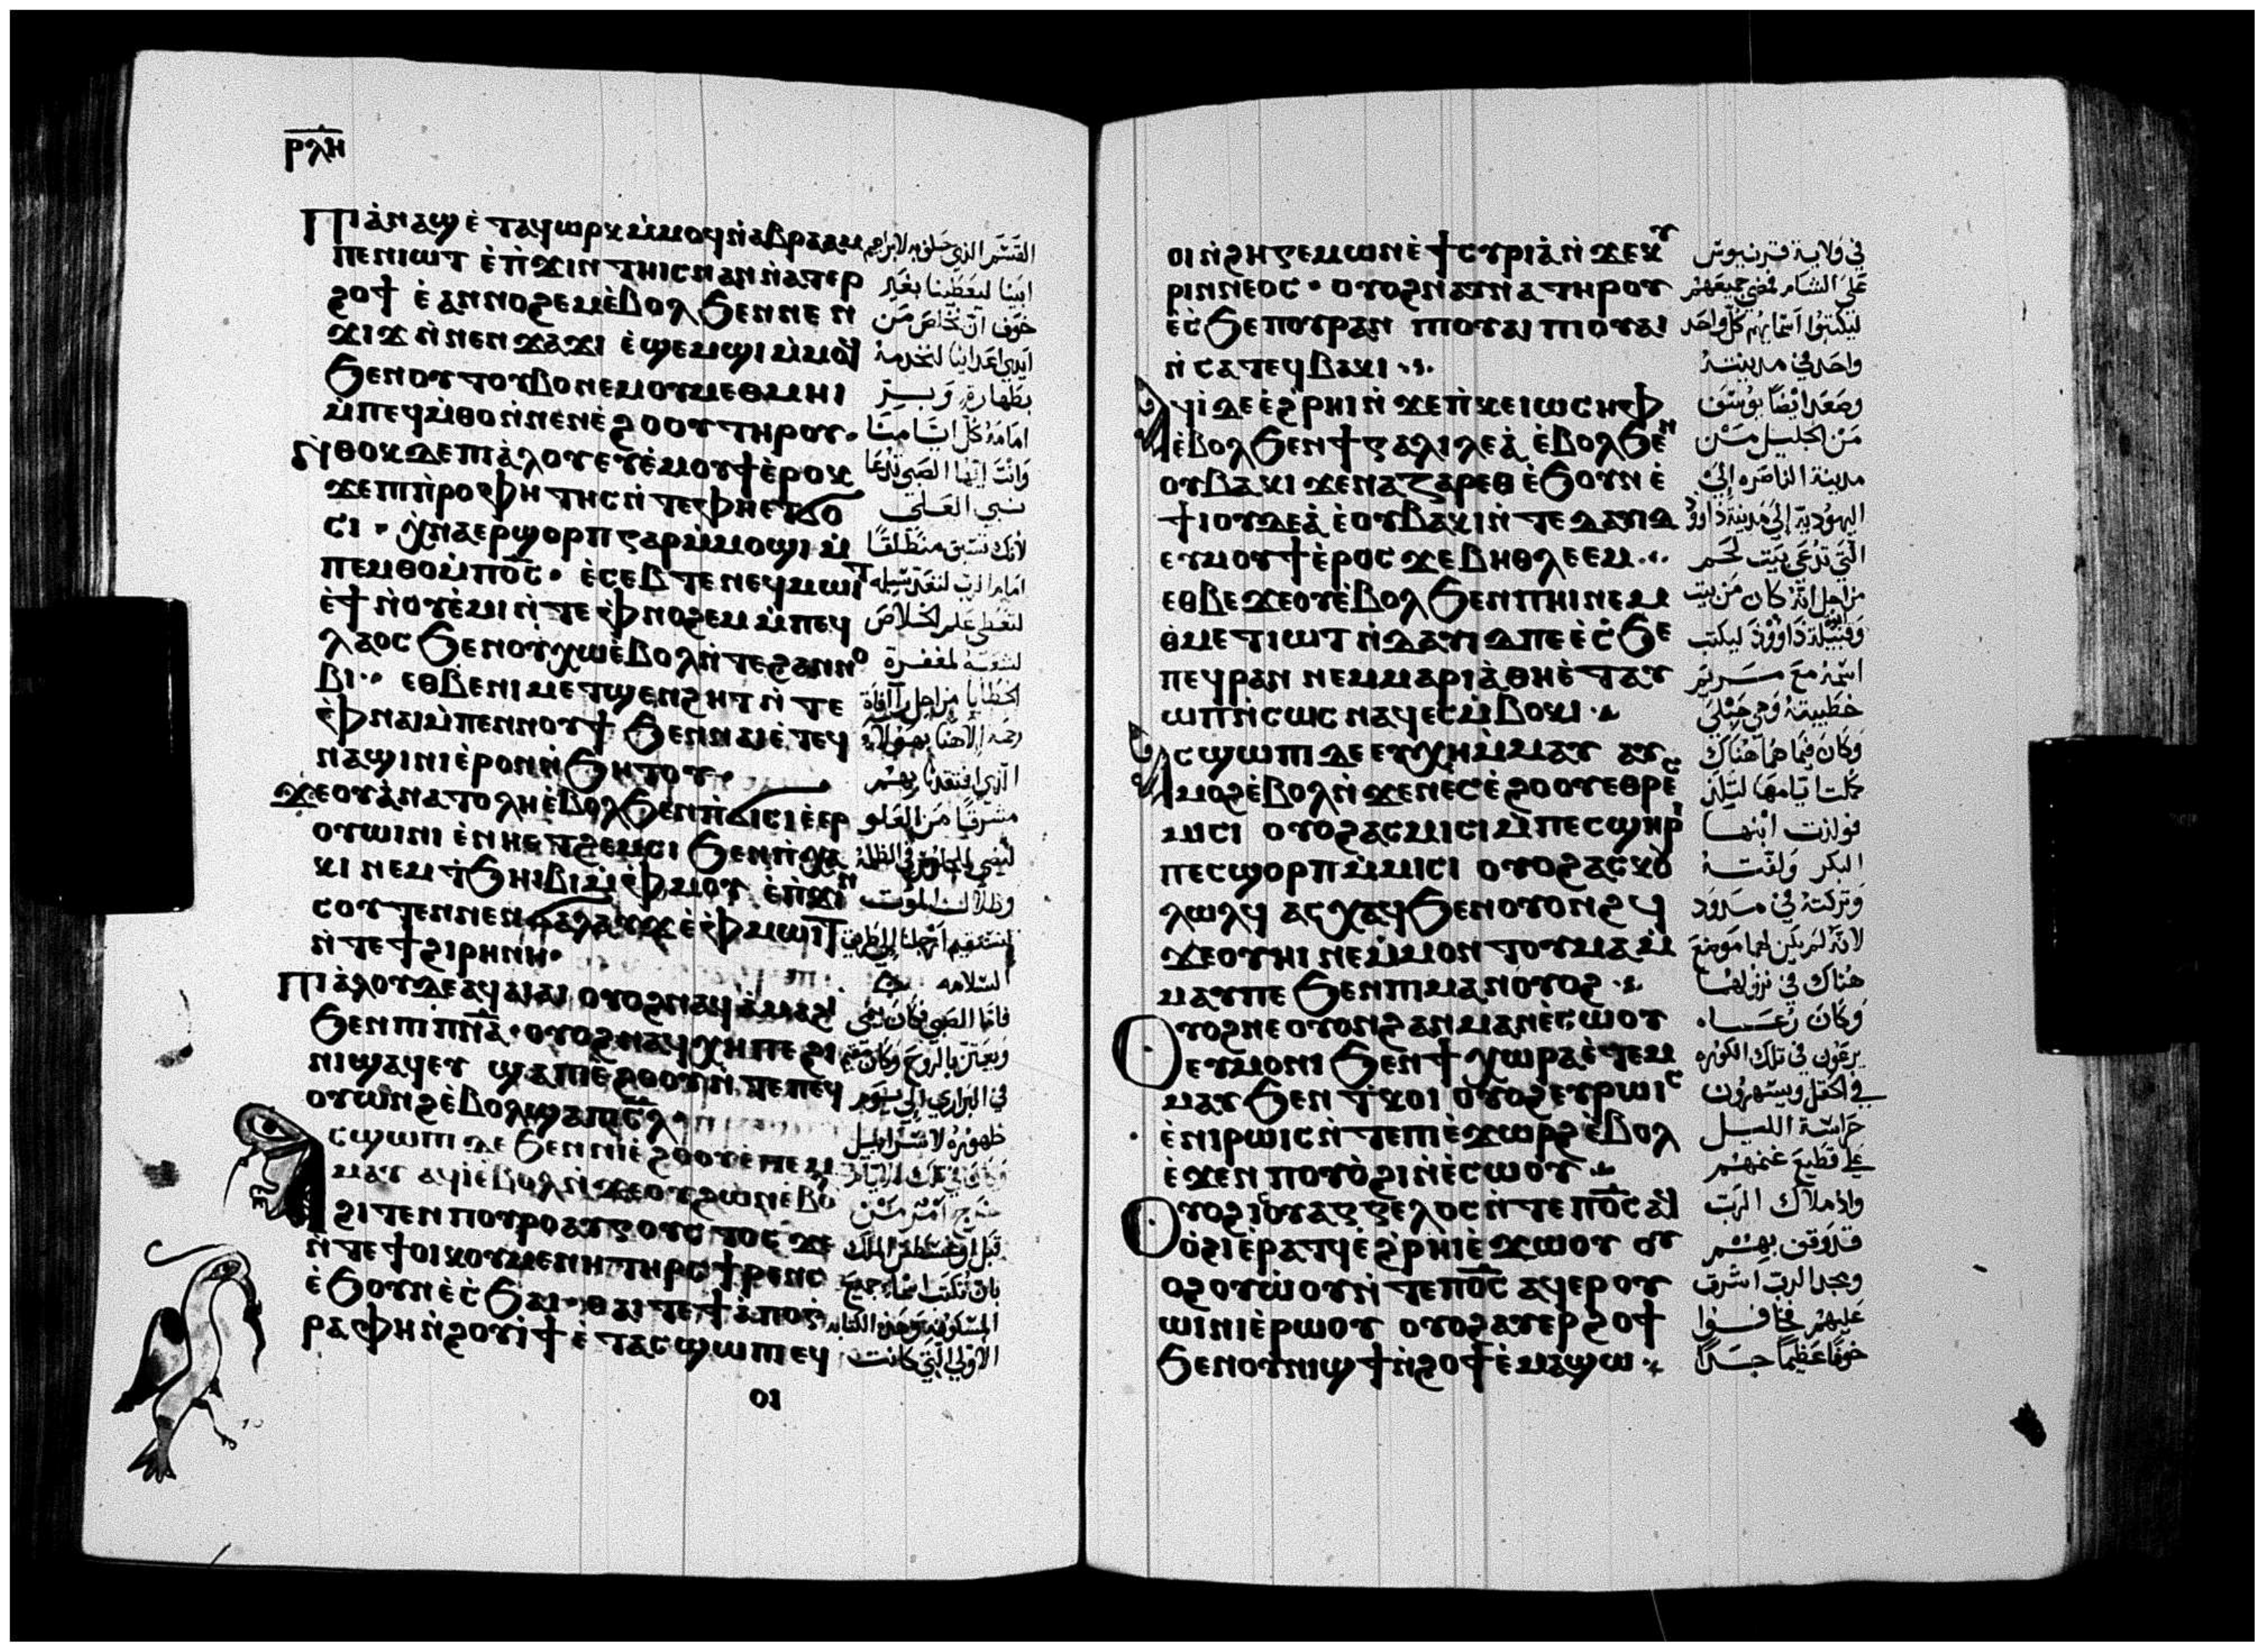 ⲣⲗⲏ
ⲡⲓⲁ̀ⲛⲁϣ ⲉ̀ⲧⲁϥⲱⲣⲕ ⲙ̀ⲙⲟϥ ⲛ̀ⲁⲃⲣⲁⲁⲙ
ⲡⲉⲛⲓⲱⲧ ⲉ̀ⲡ̀ϫⲓⲛⲧⲏⲓⲥ ⲛⲁⲛ ⲛ̀ⲁⲧⲉⲣ
ϩⲟϯ ⲉ̀ⲁⲛⲛⲟϩⲉⲙ ⲉ̀ⲃⲟⲗ ϧⲉⲛ ⲛⲉⲛ
ϫⲓϫ ⲛ̀ⲛⲉⲛϫⲁϫⲓ ⲉ̀ϣⲉⲙϣⲓ ⲙ̀ⲙⲟϥ
ϧⲉⲛ ⲟⲩⲧⲟⲩⲃⲟ ⲛⲉⲙ ⲟⲩⲙⲉⲑⲙⲏⲓ
ⲙ̀ⲡⲉϥⲙ̀ⲑⲟ ⲛ̀ⲛⲉⲛⲉ̀ϩⲟⲟⲩ ⲧⲏⲣⲟⲩ·
ⲛ̀ⲑⲟⲕ ⲇⲉ ⲡⲓⲁ̀ⲗⲟⲩ ⲉⲩⲉ̀ⲙⲟⲩϯ ⲉ̀ⲣⲟⲕ
ϫⲉ ⲡⲓⲡ̀ⲣⲟⲫⲏⲧⲏⲥ ⲛ̀ⲧⲉ ⲫⲏⲉⲧϭⲟ
ⲥⲓ· ⲭ̀ⲛⲁⲉⲣϣⲟⲣⲡ ⲅⲁⲣ ⲙ̀ⲙⲟϣⲓ ⲙ̀
ⲡⲉⲙⲑⲟ ⲙ̀ⲡⲟ̅ⲥ̅· ⲉ̀ⲥⲉⲃⲧⲉ ⲛⲉϥⲙⲱⲓⲧ
ⲉ̀ϯ ⲛ̀ⲟⲩⲉ̀ⲙⲓ ⲛ̀ⲧⲉ ⲫ̀ⲛⲟϩⲉⲙ ⲙ̀ⲡⲉϥ
ⲗⲁⲟⲥ ϧⲉⲛ ⲟⲩⲭⲱ ⲉ̀ⲃⲟⲗ ⲛ̀ⲧⲉ ϩⲁⲛⲛⲟ
ⲃⲓ·· ⲉⲑⲃⲉ ⲛⲓⲙⲉⲧϣⲉⲛϩⲏⲧ ⲛ̀ⲧⲉ
ⲫ̀ⲛⲁⲓ ⲙ̀ⲡⲉⲛⲛⲟⲩϯ ϧⲉⲛ ⲛⲁⲓ ⲉ̀ⲧⲉϥ
ⲛⲁϣⲓⲛⲓ ⲉ̀ⲣⲟⲛ ⲛ̀ϧⲏⲧⲟⲩ·
ϫⲉ ⲟⲩⲁ̀ⲛⲁⲧⲟⲗⲏ ⲉ̀ⲃⲟⲗ ϧⲉⲛ ⲡ̀ϭⲓⲥⲓ ⲉ̀ⲉⲣ
ⲟⲩⲱⲓⲛⲓ ⲉ̀ⲛⲏⲉⲧϩⲉⲙⲥⲓ ϧⲉⲛ ⲡ̀ⲭⲁ
ⲕⲓ ⲛⲉⲙ ⲧ̀ϧⲏⲓⲃⲓ ⲙ̀ⲫ̀ⲙⲟⲩ ⲉ̀ⲡ̀ϫⲓⲛ
ⲥⲟⲩⲧⲉⲛ ⲛⲉⲛϭⲁⲗⲁⲩϫ ⲉ̀ⲫ̀ⲙⲱⲓⲧ
ⲛ̀ⲧⲉ ϯϩⲓⲣⲏⲛⲏ·
ⲡⲓⲁ̀ⲗⲟⲩ ⲇⲉ ⲁϥⲁⲓⲁⲓ ⲟⲩⲟϩ ⲛⲁϥⲁ̀ⲙⲁϩⲓ
ϧⲉⲛ ⲡⲓⲡ̅ⲛ̅ⲁ̅· ⲟⲩⲟϩ ⲛⲁϥⲭⲏ ⲡⲉ ϩⲓ
ⲛⲓϣⲁϥⲉⲩ ϣⲁ ⲡⲓⲉ̀ϩⲟⲟⲩ ⲛ̀ⲧⲉ ⲡⲉϥ
ⲟⲩⲱⲛϩ ⲉ̀ⲃⲟⲗ ϣⲁ ⲡⲓⲥ̅ⲗ̅·
ⲥϣⲱⲡⲓ ⲇⲉ ϧⲉⲛ ⲛⲓⲉ̀ϩⲟⲟⲩ ⲉ̀ⲧⲉⲙ
ⲙⲁⲩ ⲁϥⲓ̀ ⲉ̀ⲃⲟⲗ ⲛ̀ϫⲉ ⲟⲩϩⲱⲛ ⲉ̀ⲃⲟ
ϩⲓⲧⲉⲛ ⲡⲟⲩⲣⲟ ⲁⲩⲅⲟⲩⲥⲧⲟⲥ ϫⲉ
ⲛ̀ⲧⲉ ϯⲟⲓⲕⲟⲩⲙⲉⲛⲏ ⲧⲏⲣⲥ ϯⲣⲉⲛⲥ
ⲉ̀ϧⲟⲩⲛ ⲉ̀ⲥ̀ϧⲁⲓ· ⲑⲁⲓ ⲧⲉ ϯⲁ̀ⲡⲟⲅ
ⲣⲁⲫⲏ ⲛ̀ϩⲟⲩⲓ̀ϯ ⲉ̀ⲧⲁⲥϣⲱⲡⲓ ⲉϥ
ⲟⲓ
القسم الذي حلف به لابراهيم
ابينا ليعطينا بغير
خوف ان نخلص من
ايدي اعدائنا لنخدمه
بطهارة وببر
امامه كل ايامنا
وانت ايها الصبي تدعا
نبي العلي
لانك تسبق منطلقا
امام الرب لتعد سبله
لتعطي علم الخلاص
لشعبه لمغفرة
الخطايا من اجل رافاة
رحمة الاهنا بهولاء
الذي افتقدنا بهم
مشرقا من العلو
ليضي للجالسين في الظلمة
وظلال الموت
لتستقيم ارجلنا الى طريق
السلامه
فاما الصبي فكان ينمى
ويعتز بالروح وكان مقيم
في البراري الى يوم
ظهوره لاسراييل
خرج امر من
قبل اوغسطس الملك
بان تكتب اسماء جميع
المسكونة وهذه الكتابة
الاولى التي كانت
ⲟⲓ ⲛ̀ϩⲏⲅⲉⲙⲱⲛ ⲉ̀ϯⲥⲩⲣⲓⲁ̀ ⲛ̀ϫⲉ ⲕⲩ
ⲣⲓⲛⲛⲉⲟⲥ· ⲟⲩⲟϩ ⲛⲁⲩⲛⲁ ⲧⲏⲣⲟⲩ
ⲉ̀ⲥ̀ϧⲉ ⲡⲟⲩⲣⲁⲛ ⲡⲓⲟⲩⲁⲓ ⲡⲓⲟⲩⲁⲓ
ⲛ̀ⲥⲁ ⲧⲉϥⲃⲁⲕⲓ
ⲁϥⲓ̀ ⲇⲉ ⲉ̀ϩ̀ⲣⲏⲓ ⲛ̀ϫⲉ ⲡ̀ⲕⲉⲓⲱⲥⲏⲫ
ⲉ̀ⲃⲟⲗ ϧⲉⲛ ϯⲅⲁⲗⲓⲗⲉⲁ̀ ⲉ̀ⲃⲟⲗ ϧⲉⲛ
ⲟⲩⲃⲁⲕⲓ ϫⲉ ⲛⲁⲍⲁⲣⲉⲑ ⲉ̀ϧⲟⲩⲛ ⲉ̀
ϯⲓⲟⲩⲇⲉⲁ̀ ⲉ̀ⲟⲩⲃⲁⲕⲓ ⲛ̀ⲧⲉ ⲇⲁⲩⲓⲇ
ⲉⲩⲙⲟⲩϯ ⲉ̀ⲣⲟⲥ ϫⲉ ⲃⲏⲑⲗⲉⲉⲙ
ⲉⲑⲃⲉ ϫⲉ ⲟⲩⲉ̀ⲃⲟⲗ ϧⲉⲛ ⲡⲏⲓ ⲛⲉⲙ
ⲑ̀ⲙⲉⲧⲓⲱⲧ ⲛ̀ⲇⲁⲩⲓⲇ ⲡⲉ ⲉ̀ⲥ̀ϧⲉ
ⲡⲉϥⲣⲁⲛ ⲛⲉⲙ ⲙⲁⲣⲓⲁ̀ ⲑⲏⲉ̀ⲧⲁⲩ
ⲱⲡ ⲛ̀ⲥⲱⲥ ⲛⲁϥ ⲉⲥⲙ̀ⲃⲟⲕⲓ
ⲁⲥϣⲱⲡⲓ ⲇⲉ ⲉⲩⲭⲏ ⲙ̀ⲙⲁⲩ ⲁⲩ
ⲙⲟϩ ⲉ̀ⲃⲟⲗ ⲛ̀ϫⲉ ⲛⲉⲥⲉ̀ϩⲟⲟⲩ ⲉⲑⲣⲉⲥ
ⲙⲓⲥⲓ ⲟⲩⲟϩ ⲁⲥⲙⲓⲥⲓ ⲙ̀ⲡⲉⲥϣⲏⲣⲓ
ⲡⲉⲥϣⲟⲣⲡ ⲙ̀ⲙⲓⲥⲓ ⲟⲩⲟϩ ⲁⲥⲕⲟⲩ
ⲗⲱⲗϥ ⲁⲥⲭⲁϥ ϧⲉⲛ ⲟⲩⲟⲛϩϥ
ϫⲉ ⲟⲩⲏⲓ ⲛⲉ ⲙ̀ⲙⲟⲛ ⲧⲟⲩⲙⲁ ⲙ̀
ⲙⲁⲩ ⲡⲉ ϧⲉⲛ ⲡⲓⲙⲁⲛ̀ⲟⲩⲟϩ
ⲟⲩⲟϩ ⲛⲉ ⲟⲩⲟⲛ ϩⲁⲛⲙⲁⲛⲉ̀ⲥⲱⲟⲩ
ⲉⲩⲙⲟⲛⲓ ϧⲉⲛ ϯⲭⲱⲣⲁ ⲉ̀ⲧⲉⲙ
ⲙⲁⲩ ϧⲉⲛ ⲧ̀ⲕⲟⲓ ⲟⲩⲟϩ ⲉⲩⲣⲱⲓⲥ
ⲉ̀ⲛⲓⲣⲱⲓⲥ ⲛ̀ⲧⲉ ⲡⲓⲉ̀ϫⲱⲣϩ ⲉ̀ⲃⲟⲗ
ⲉ̀ϫⲉⲛ ⲡⲟⲩⲟ̀ϩⲓ ⲛ̀ⲉ̀ⲥⲱⲟⲩ
ⲟⲩⲟϩ ⲓⲥ ⲟⲩⲁⲅⲅⲉⲗⲟⲥ ⲛ̀ⲧⲉ ⲡⲟ̅ⲥ̅ ⲁϥ
ⲟ̀ϩⲓ ⲉ̀ⲣⲁⲧϥ ⲉ̀ϩ̀ⲣⲏⲓ ⲉ̀ϫⲱⲟⲩ ⲟⲩ
ⲟϩ ⲟⲩⲱ̀ⲟⲩ ⲛ̀ⲧⲉ ⲡⲟ̅ⲥ̅ ⲁϥⲉⲣⲟⲩ
ⲱⲓⲛⲓ ⲉ̀ⲣⲱⲟⲩ ⲟⲩⲟϩ ⲁⲩⲉⲣϩⲟϯ
ϧⲉⲛ ⲟⲩⲛⲓϣϯ ⲛ̀ϩⲟϯ ⲉ̀ⲙⲁϣⲱ
في ولاية قرنيوس
على الشام فمضى جميعهم
ليكتبوا اسمايهم كل واحد
واحد في مدينته
وصعد ايضا يوسف
من الجليل من
مدينة الناصره الى
اليهودية الى مدينة داوود
التي تدعى بيت لحم
من اجل انه كان من بيت
وقبيلة داوود ليكتب
اسمه مع مريم
خطيبته وهي حبلى
وكان فيما هما هناك
كملت ايامها لتلد
فولدت ابنها
البكر ولفته
وتركته في مدود
لانه لم يكن لهما موضع
هناك في نزولهما
وكان رعاه
يرعون في تلك الكوره
في الحقل ويسهرون
حراسة الليل
على قطيع غنمهم
واذ ملاك الرب
قد وقف بهم
ومجد الرب اشرق
عليهم فخافوا
خوفا عظيما جدا